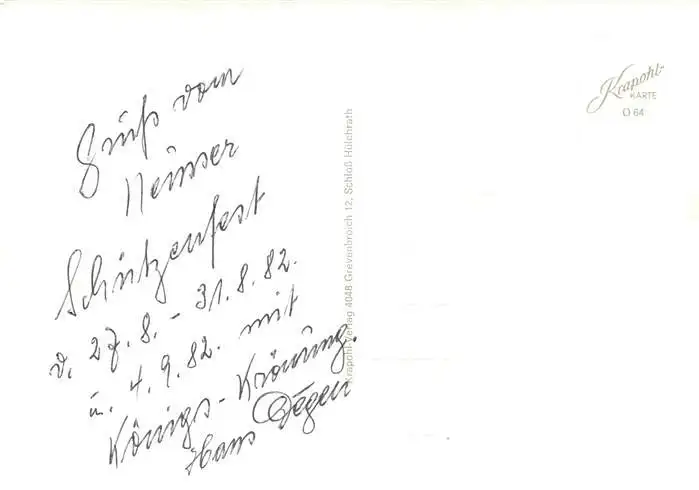 Gruß vom
Neusser
Schützenfest
v. 27.8. - 31.8.82.
u. 4.9.82. mit
Königs-Krönung.
Hans Degen
Krapohl-Verlag 4048 Grevenbroich 12, Schloß Hülchrath
Krapohl-
KARTE
O 64